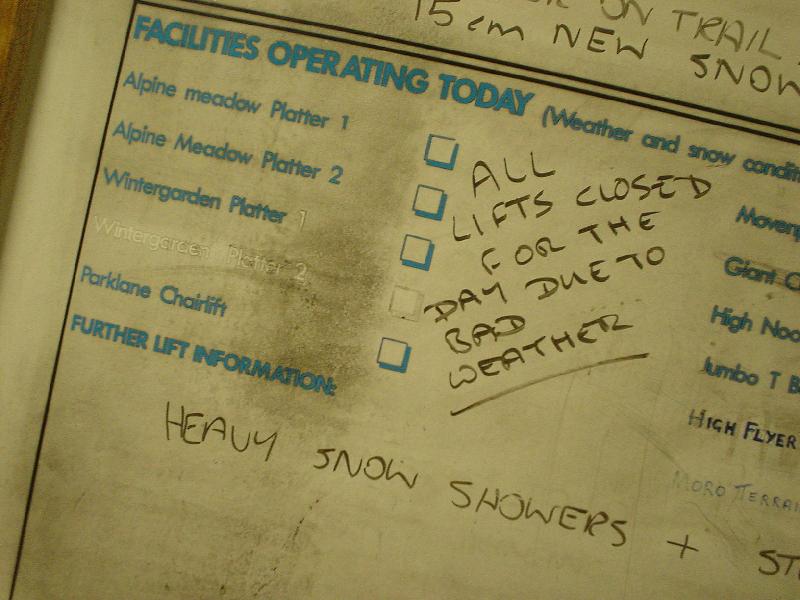 ON TRAIL
15 cm NEW SNOW
FACILITIES OPERATING TODAY (Weather and snow condit
Alpine meadow Platter 1
Alpine Meadow Platter 2
Wintergarden Platter 1
Wintergarden Platter 2
Parklane Chairlift
FURTHER LIFT INFORMATION:
ALL
LIFTS CLOSED
FOR THE
DAY DUE TO
BAD
WEATHER
Movenp
Giant C
High Noo
Jumbo T B
HIGH FLYER
MORO TERRAI
HEAVY SNOW SHOWERS + ST